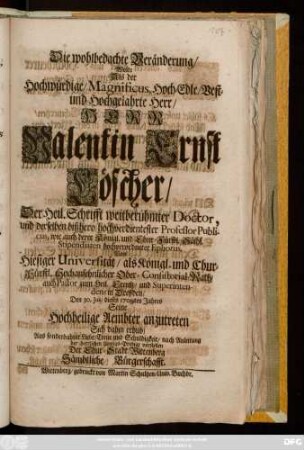 Die wohlbedachte Veränderung/
Als der
Hochwürdige/ Magnificus, Hoch-Edle/ Vest-
und Hochgelahrte Herr/
HERR
Valentin Ernst
Löscher/
Der Heil. Schrifft weitberühmter Doctor,
und derselben bißhero hochverdientester Professor Publi-
cus, wie auch derer Königl. und Chur-Fürstl. Sächs.
Stipendiaten hochverordneter Ephorus,
Von
Hiesiger Universität/ als Königl. und Chur-
Fürstl. Hochansehnlicher Ober-Consistorial-Rath/
auch Pastor zum Heil. Creutz/ und Superinten-
dens in Dreßden/
Den 20. Jul. dieses 1709ten Jahres
Seine
Hochheilige Aembter anzutreten
Sich dahin erhub/
Aus sonderbahrer Liebe/ Treue und Schuldigkeit/ nach Anleitung
der Chur-Stadt Wittenberg
Sämbtliche Bürgerschafft.
Wittenberg/ gedruckt von Martin Schultzen/ Univ. Buchdr.